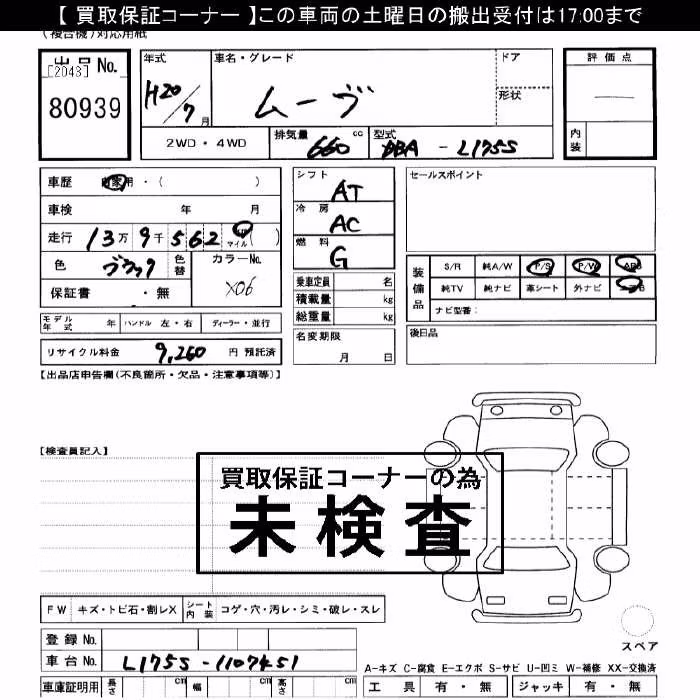 【 買取保証コーナー 】この車両の土曜日の搬出受付は17:00まで
(複合機)対応用紙
出品 No.
[2043]
80939
年式
H20/7月
車名・グレード
ムーヴ
ドア
形状
評価点
内装
2WD・4WD
排気量 660 cc
型式 DBA - L175S
車歴 自家用・( )
車検 年 月
走行 13万9千562 マイル( )
色 ブラック
色替
カラーNo.
X06
保証書 ・無
シフト AT
冷房 AC
燃料 G
セールスポイント
装備品
S/R 純A/W P/S P/W ABS
純TV 純ナビ 革シート 外ナビ
ナビ型番:
乗車定員 名
積載量 kg
総重量 kg
モデル年式 年 ハンドル 左・右 ディーラー・並行
名変期限
月 日
後日品
リサイクル料金 9,260 円 預託済
【出品店申告欄(不良箇所・欠品・注意事項等)】
【検査員記入】
買取保証コーナーの為
未検査
FW キズ・トビ石・割レX シート内装 コゲ・穴・汚レ・シミ・破レ・スレ
スペア
登録 No.
車台 No. L175S-1107451
A-キズ C-腐食 E-エクボ S-サビ U-凹ミ W-補修 XX-交換済
車庫証明用 長さ cm 幅 cm 高さ cm
工具 有・無 ジャッキ 有・無